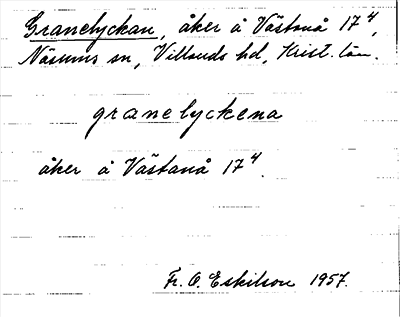 Granelyckan, åker å Västanå 17⁴,
Näsums sn, Villands hd, Krist. län.
granelyckena
åker å Västanå 17⁴.
Fr. O. Eskilson 1957.